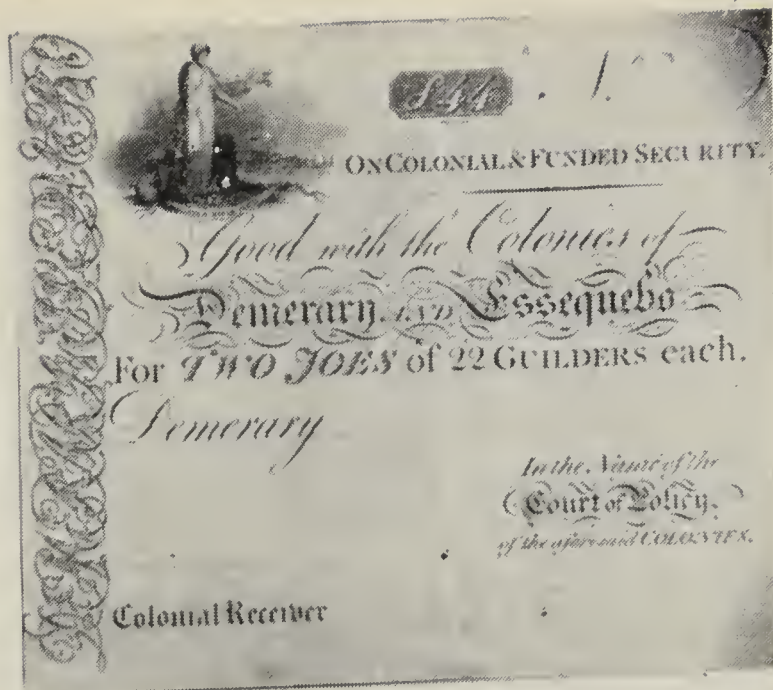 ƒ44
ON COLONIAL & FUNDED SECURITY.
Good with the Colonies of
Demerary AND Essequebo
For TWO JOES of 22 GUILDERS each.
Demerary
In the Name of the
Court of Policy,
of the aforesaid COLONIES.
Colonial Receiver